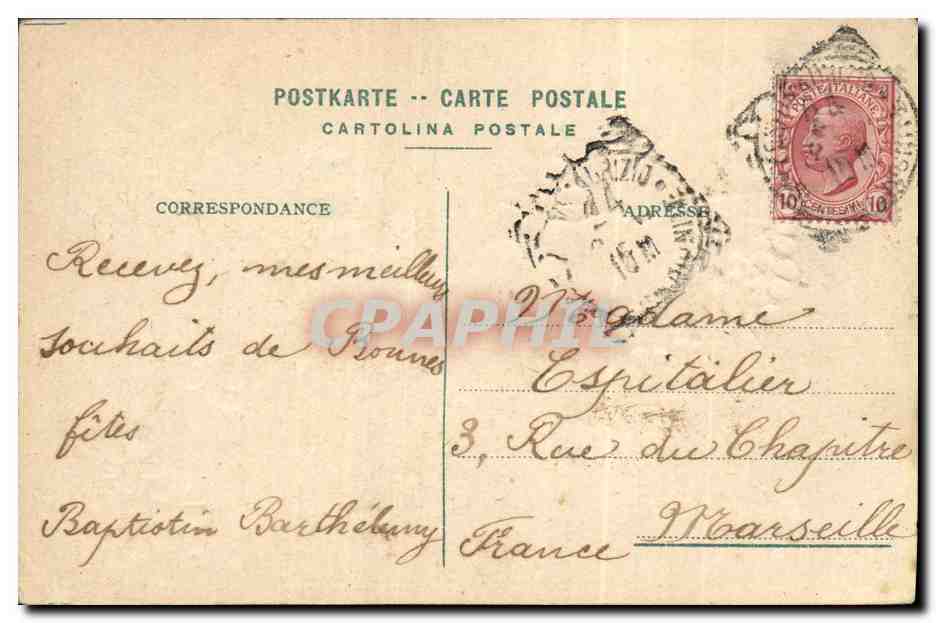 POSTKARTE -- CARTE POSTALE
CARTOLINA POSTALE
CORRESPONDANCE
ADRESSE
POSTE ITALIANE
10 CENTESIMI 10
Recevez, mes meilleurs
souhaits de Bonnes
fêtes
Baptistin Barthélemy
Madame
Espitalier
3, Rue du Chapitre
Marseille
France
CPAPHIL